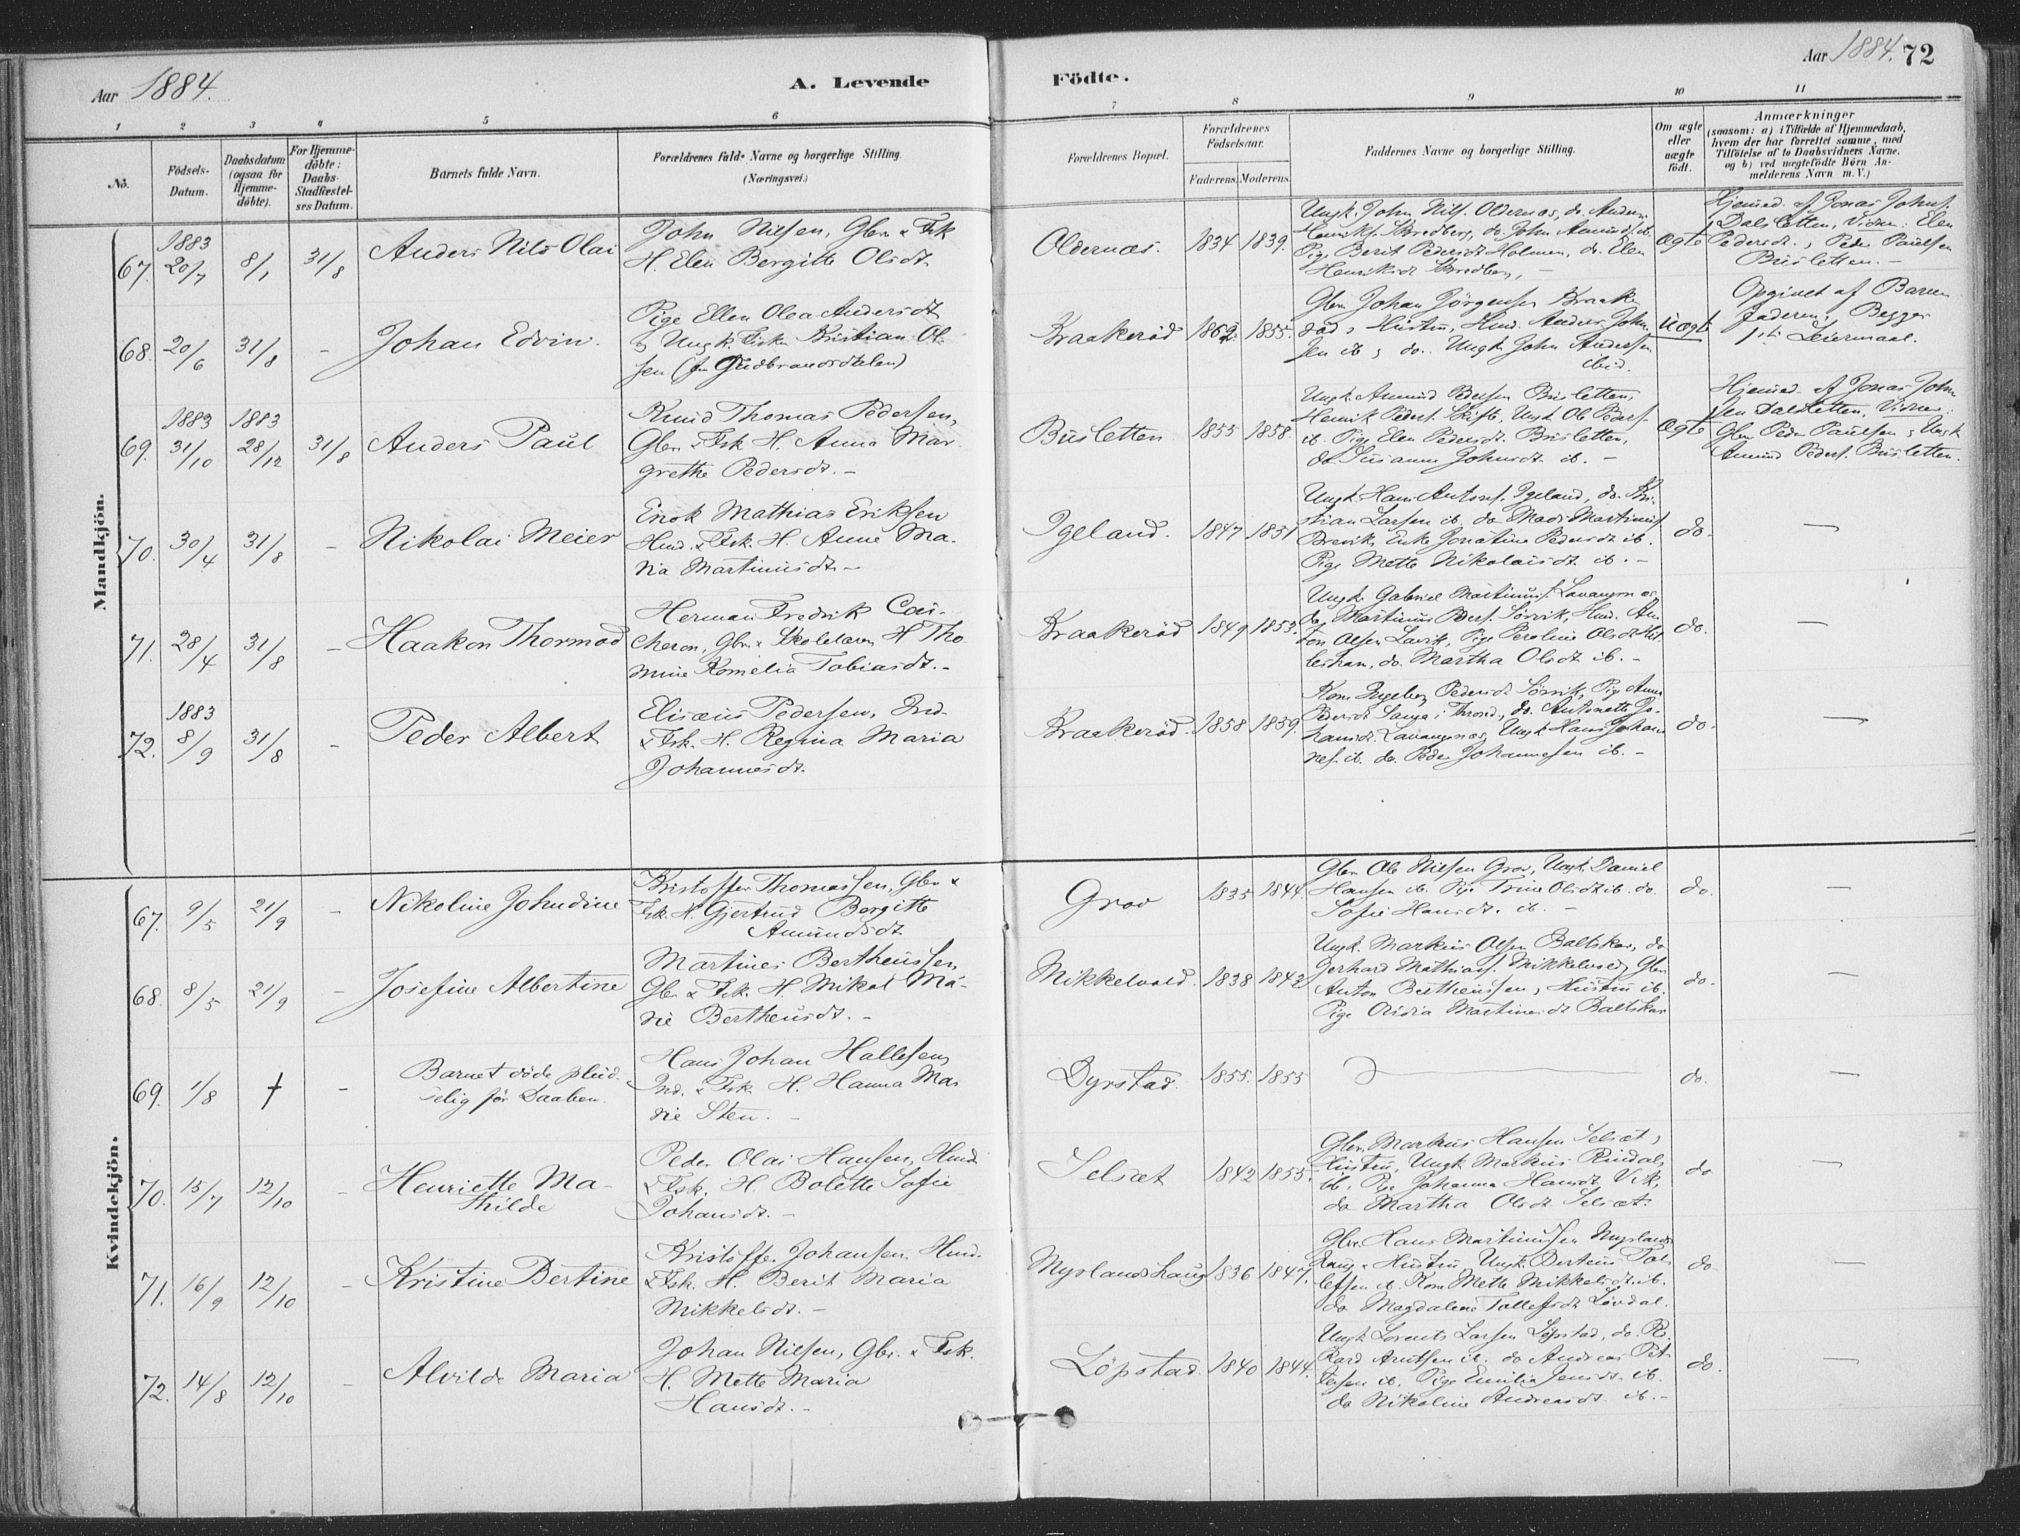 Aar 1884.
A. Levende
Födte.
Aar 1884. 72
1 2 3 4 5 6 7 8 9 10 11
No.
Födsels-
Datum.
Daabsdatum
(ogsaa for
Hjemme-
döbte).
For Hjemme-
döbte:
Daabs-
Stadfæstel-
ses Datum.
Barnets fulde Navn.
Forældrenes fulde Navne og borgerlige Stilling.
(Næringsvei.)
Forældrenes Bopæl.
Forældrenes
Födselsaar.
Faderens. Moderens.
Faddernes Navne og borgerlige Stilling.
Om ægte
eller
uægte
födt.
Anmærkninger
(saasom: a) i Tilfælde af Hjemmedaab,
hvem der har forrettet samme, med
Tilföielse af to Daabsvidners Navne.
og b) ved uægtefödte Börn An-
melderens Navn m. V.)
Mandkjön.
67. 1883 20/7 8/1 31/8 Anders Nils Olai
John Nilsen, Gbr. & Fsk
H. Elen Bergitte Olsdt.
Oldernæs. 1834 1839.
Ungk. John Nils. Oldernæs, do. Anders
Henriks. Bredberg, do. John Amunds. ib.
Pige Berit Pedersdt Holmen, do. Elen
Henriksdt Bredberg, –
Ægte
Hjemmed. af Jonas Johns.
Dalsletten, Vidner: Elen
Pedersdt., Peder Paulsen
Brusletten. –
68. 20/6 31/8 – Johan Edvin.
Pige Ellen Olea Andersdt
& Ungk. Fisk. Kristian Ol-
sen (fra Gudbrandsdalen)
Kraakeröd 1862. 1855.
Gbr. Johan Jörgensen Kraake
röd & Hustru, Hmd. Anders John
sen ib & do. Ungk John Andersen
ibid.
Uægte
Opgivet af Barne
faderen, Begges
1ste Leiermaal.
69. 1883 31/10 1883 28/12 31/8 Anders Paul
Knud Thomas Pedersen,
Gbr. & Fsk H. Anna Mar
grethe Pedersdt. –
Brusletten 1855 1858.
Ungk. Amund Pedersen Brusletten,
Henrik Peders. Skifte, Ungk Ole Peders.
ib. Pige Elen Pedersdt. Brusletten,
do Susanna Johnsdt. ib. –
Ægte
Hjemmed. af Jonas John
sen Dalsletten, Vidner:
Gbr Peder Paulsen & Ungk
Amund Peders. Brusletten.
70. 30/4 31/8 – Nikolai Meier
Enok Mathias Eriksen
Hmd. & Fsk. H. Anne Ma-
ria Martinusdt. –
Igeland. 1847 1851
Ungk. Hans Antons. Igeland, do. Kri
stian Larsen ib. do Mads Martinus.
Brevik, Enke Jonatine Pedersdt ib.
Pige Mette Nikolaisdt. ib. –
do. —
71. 28/4 31/8 – Haakon Thormod
Herman Fredrik Cai-
cheron, Gbr. & Skolelærer H Tho
mine Kornelia Tobiasdt. –
Kraakeröd 1849 1853.
Ungk. Gabriel Martinus. Lavangsnæs,
do Martinus Peders. Sörvik, Hmd. An
ton Olsen Lavik, Pige Peroline Olsdt Kit
leshan, do. Martha Olsdt ib. –
do. —
72. 1883 8/9 31/8 – Peder Albert
Elisæus Pedersen, Ind.
& Fsk. H. Regina Maria
Johannesdt.
Kraakeröd. 1858 1859.
Kone Ingeborg Pedersdt Sörvik, Pige Anna
Pedersdt Sanga i Throndj, do. Antonette Jo-
hansdt. Lavangsnæs, Ungk Hans Johan
nes. ib. do. Peder Johannesen ib. –
do. —
Kvindekjön.
67. 9/5 21/9 – Nikoline Johndine
Kristoffer Thomassen, Gbr &
Fsk. H. Gjertrud Bergitte
Amundsdt.
Grov 1835 1844.
Gbr. Ole Nilsen Grov, Ungk. Daniel
Hansen ib. Pige Trine Olsdt. ib. do.
Sofie Hansdt. ib. –
do. —
68. 8/5 21/9 – Josefine Albertine
Martines Bertheussen
Gbr. & Fsk. H. Mikal Ma-
rie Bertheusdt. –
Mikkelvold. 1838 1842
Ungk. Markus Olsen Baltskar, do
Gerhard Mathias. Mikkelvold, Gbr.
Anton Bertheussen, Hustru ib.
Pige Ovidia Martinesdt Baltskar
do. —
69. 1/8 † – Barnet döde plud
selig för Daaben.
Hans Johan Hallesen
Ind. & Fsk. H. Hanna Ma
rie Sten. –
Dyrstad. 1855. 1855
do. —
70. 15/7 12/10 – Henriette Ma-
thilde
Peder Olai Hansen, Hmd
& Fsk. H. Bolette Sofie
Johansdt. –
Selsæt 1842 1855.
Gbr. Markus Hansen Selsæt,
Hustru, Ungk Markus Rindal,
ib, Pige Johanna Hansdt Vik,
do Martha Olsdt. Selsæt.
do —
71. 16/9 12/10 – Kristine Bertine
Kristoffer Johansen, Hmd.
& Fsk. H. Berit Maria
Mikkelsdt. –
Myrlandshaug 1836 1847.
Gbr. Hans Martinussen Myrlands
haug & Hustru, Ungk. Berteus Tol
lefsen ib. Kone Mette Mikkelsdt. ib.
do Magdalene Tollefsdt Lövdal.
do —
72. 14/8 12/10 – Alvilde Maria
Johan Nilsen, Gbr. & Fsk.
H. Mette Maria
Hansdt. –
Löpstad. 1840 1844.
Ungk. Lorents Larsen Löpstad, do. Ri-
kard Arntsen ib. do Andreas Pet
tersen ib. Pige Emilia Jensdt. ib.
do Nikoline Andreasdt. ib. –
do. —